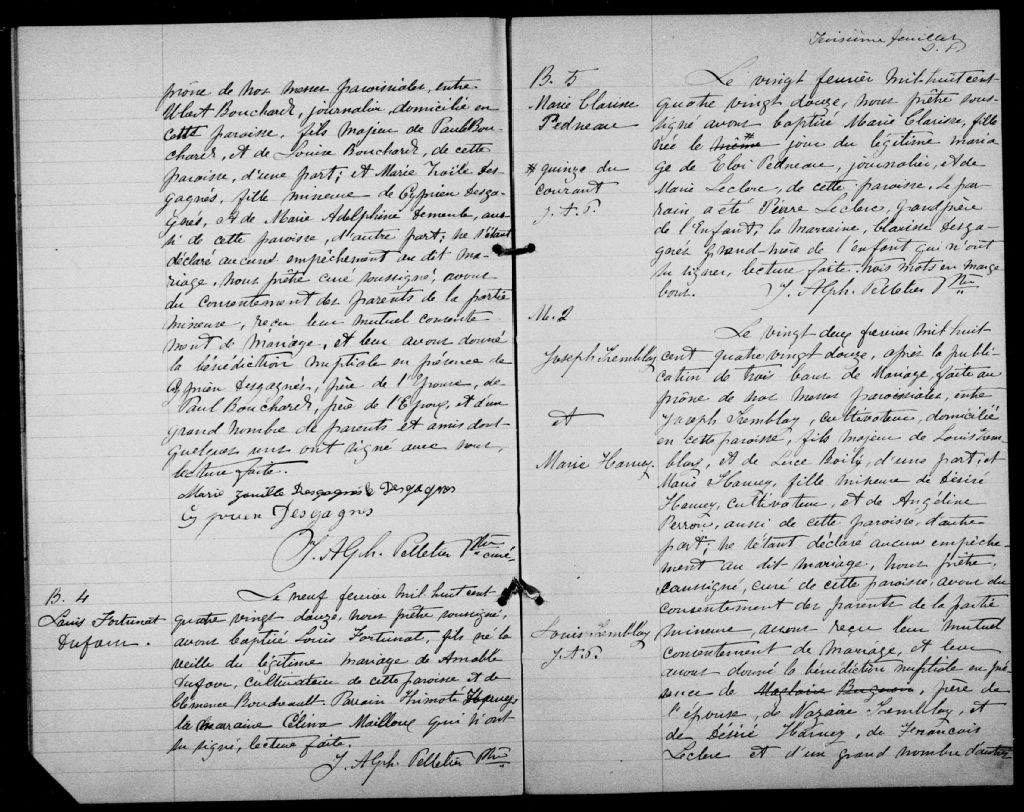 prône de nos messes paroissiales, entre
Ubert Bouchard, journalier, domicilié en
cette paroisse, fils majeur de Paul Bou-
chard, et de Louise Bouchard, de cette
paroisse, d'une part; et Marie Zoïlle Des-
gagnés, fille mineure de Cyprien Desga-
gnés, et de Marie Adelphine Demeule, aus-
si de cette paroisse, d'autre part; ne s'étant
déclaré aucun empêchement au dit ma-
riage, nous prêtre curé soussigné, avons
du consentement des parents de la partie
mineure, reçu leur mutuel consente-
ment de mariage, et leur avons donné
la bénédiction nuptiale en présence de
Cyprien Desgagnés, père de l'Epouse, de
Paul Bouchard, père de l'Epoux, et d'un
grand nombre de parents et amis dont
quelques uns ont signé avec nous,
lecture faite.
Marie Zoille Desgagnés Desgagnés
Cyprien Desgagnés
J. Alph. Pelletier Ptre
curé
B. 4
Louis Fortunat
Dufour.
Le neuf fevrier mil huit cent
quatre vingt douze, nous prêtre soussigné,
avons baptisé Louis Fortunat, fils né la
veille du légitime mariage de Amable
Dufour, cultivateur de cette paroisse et de
Clémence Boudreault Parrain Thimoté Harvey
la marraine Elina Mailloux qui n'ont
su signé, lecture faite.
J. Alph. Pelletier Ptre
Troisième feuillet
B. 5
Marie Clarisse
Pedneau
# quinze du
courant
J. A. P.
Le vingt fevrier mil huit cent
quatre vingt douze, nous prêtre sous-
signé avons baptisé Marie Clarisse, fille
née le même # jour du légitime maria
ge de Eloi Pedneau, journalier, et de
Marie Leclerc, de cette paroisse. Le par-
rain a été Pierre Leclerc, grand père
de l'Enfant, la marraine, Clarisse Desga-
gnés grand-mère de l'enfant qui n'ont
su signer, lecture faite. trois mots en marge
bons.
J. Alph. Pelletier Ptre
M. 2
Joseph Tremblay
et
Marie Harvey.
Le vingt deux fevrier mil huit
cent quatre vingt douze, après la publi-
cation de trois bans de Mariage faite au
prône de nos messes paroissiales, entre
Joseph Tremblay, cultivateur, domicilié
en cette paroisse, fils majeur de Louis Trem-
blay, et de Luce Boily, d'une part; et
Marie Harvey, fille mineure de Désiré
Harvey, cultivateur, et de Angéline
Perron, aussi de cette paroisse, d'autre
part; ne s'étant déclaré aucun empêche-
ment au dit mariage, nous prêtre,
soussigné, curé de cette paroisse, avons du
consentement des parents de la partie
mineure, avons reçu leur mutuel
consentement de mariage, et leur
avons donné la bénédiction nuptiale en pré
sence de , père de
l'épouse, de Nazaire Tremblay, et
de Désiré Harvey, de François
Leclerc et d'un grand nombre d'autres
Louis Tremblay
J. A. P.